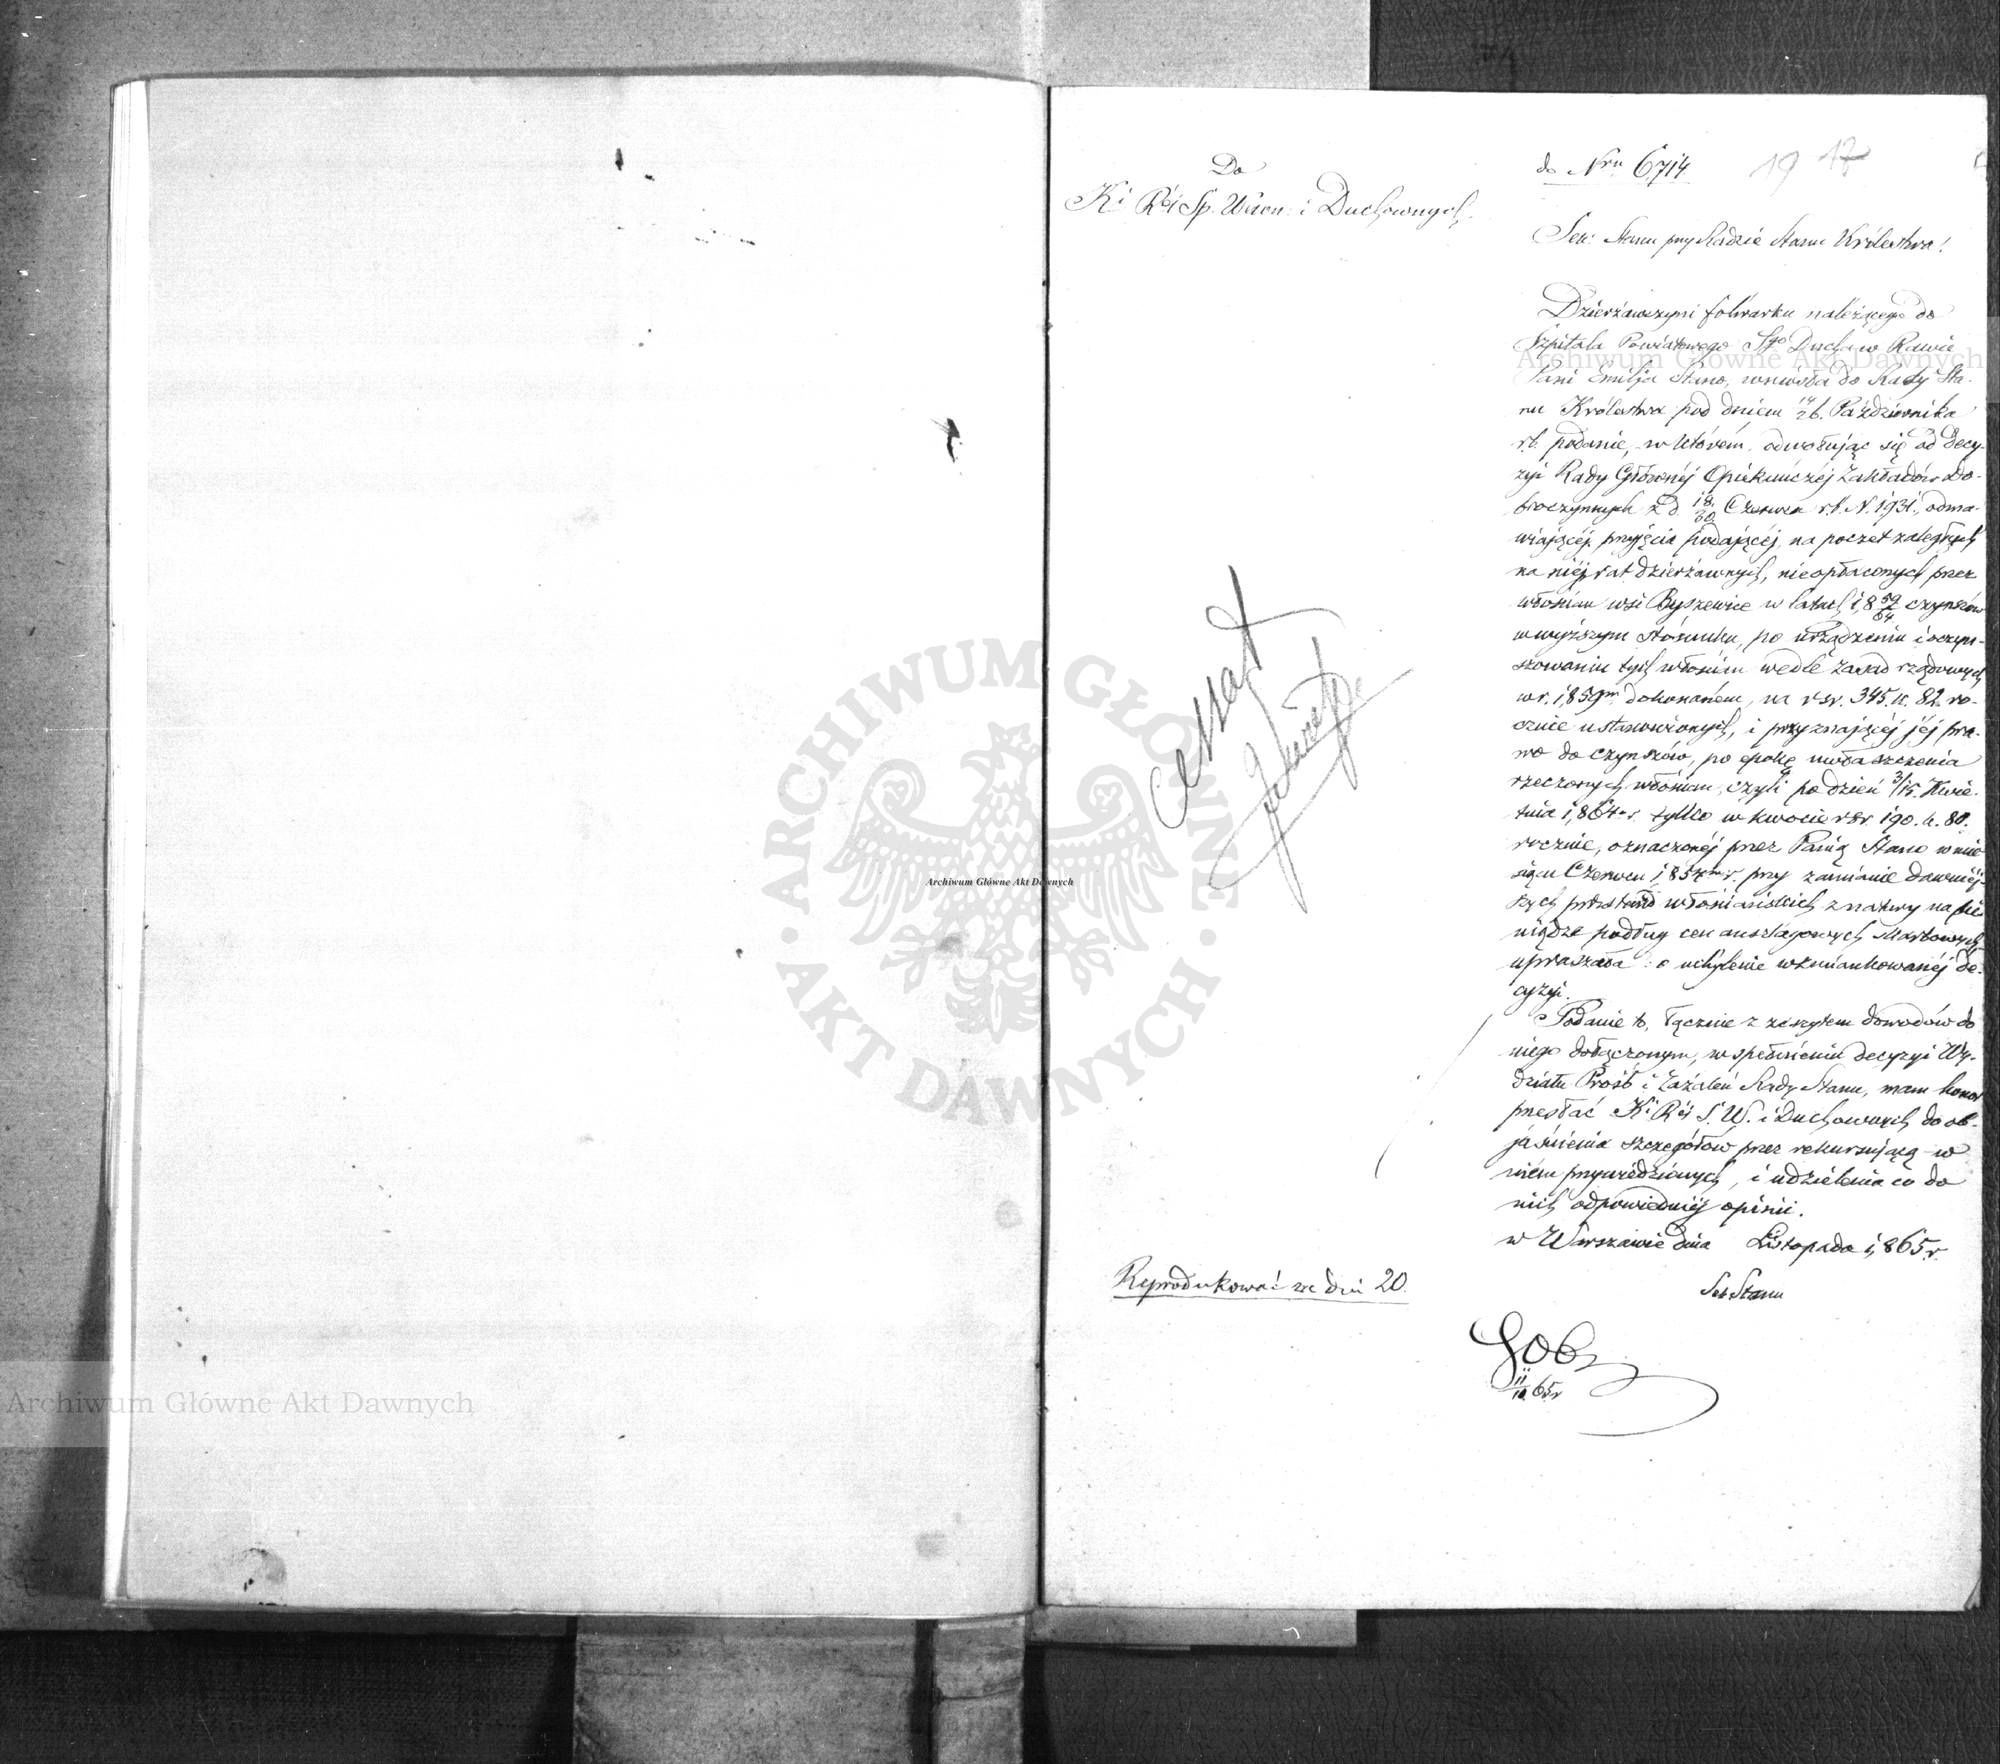 Do
Ki Rći Sp. Wewn: i Duchownych,
Cessat
Reprodukować za dni 20.
do Nru 6,714.
19 17
Sek: Stanu przy Radzie Stanu Królestwa!
Dzierżawczyni folwarku należącego do
Szpitala Powiatowego Sgo Ducha w Rawie
Pani Emilja Stano, wniosła do Rady Sta-
nu Królestwa pod dniem 14/26. Października
r.b. podanie, w którém, odwołując się od decy-
zyi Rady Głównéj Opiekuńczéj Zakładów Do-
broczynnych z d. 18/30 Czerwca r.b. N. 1931, odma-
wiającéj przyjęcia podającéj, na poczet zaległych
na niéj rat dzierżawnych, nieopłaconych przez
włościan wsi Byszewice w latach 1,859/64 czynszów
w wyższym stósunku, po urządzeniu i oczyn-
szowaniu tych włościan wedle zasad rządowych
w r. 1,859m dokonaném, na rsr. 345. k. 82. ro-
cznie ustanowionych, i przyznającéj jéj pra-
wo do czynszów, po epokę uwłaszczenia
rzeczonych włościan, czyli po dzień 3/15. Kwie-
tnia 1,864 r. tylko w kwocie rsr. 190. k. 80.
rocznie, oznaczonéj przez Panią Stano w mie-
siącu Czerwcu 1,857m r. przy zamianie dawniéj-
szych powinności włościańskich z natury na pie-
niądze podług cen anszlagowych Skarbowych
upraszała: o uchylenie wzmiankowanéj de-
cyzyi.
Podanie to, łącznie z zeszytem dowodów do
niego dołączonym, w spełnieniu decyzyi Wy-
działu Próśb i Zażaleń Rady Stanu, mam honor
przesłać Ki Rći S. W. i Duchownych do ob-
jaśnienia szczegółów przez rekursującą w
niém przywiedzionych, i udzielenia co do
nich odpowiedniéj opinii.
w Warszawie dnia Listopada 1,865 r.
Sek Stanu
11/10 65 r
Archiwum Główne Akt Dawnych
Archiwum Główne Akt Dawnych
Archiwum Główne Akt Dawnych
ARCHIWUM GŁÓWNE
AKT DAWNYCH